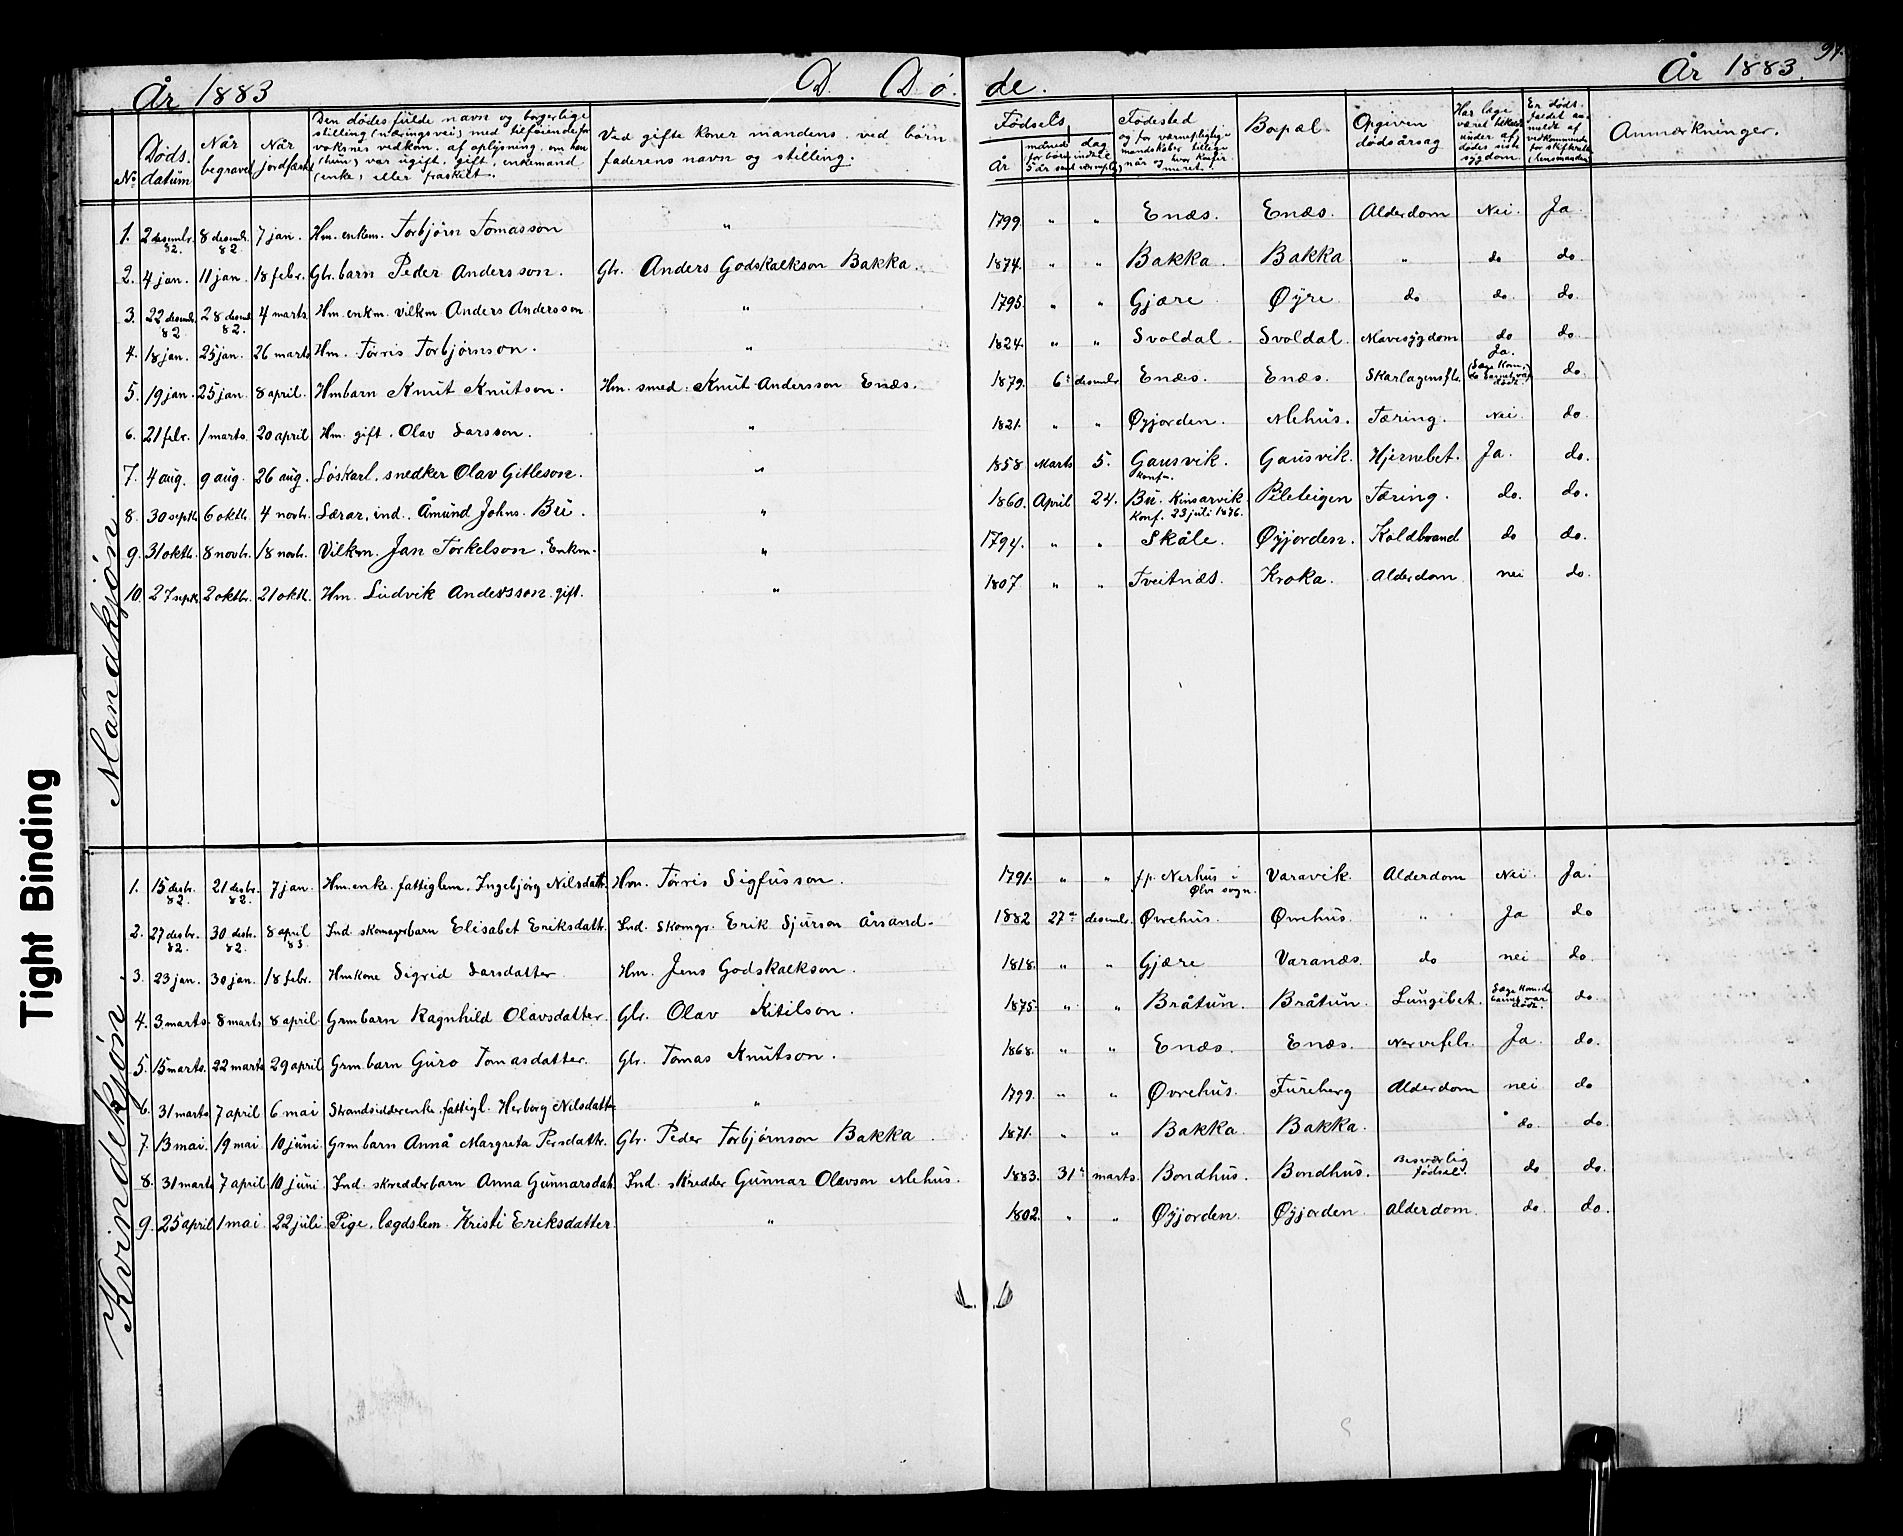 År 1883 D. Dø. de. År 1883. 97.
No. Dødsdatum Når begravet Når jordfæstet Den dødes fulde navn og borgerlige stilling (næringsvei) med tilføiende for voksnes vedkom. af oplysning, om han (hun) var ugift, gift, enkemand (enke) eller fraskilt. Ved gifte koner mandens, ved børn faderens navn og stilling. Fødsels År måned dag Fødested og for værnepligtige mandskaber tillige når og hvor konfirmeret. Bopæl. Opgiven dødsårsag Har læge været tilkaldt under afdødes sidste sygdom Er dødsfaldet anmeldt af vedkommende for skifteretten (lensmanden) Anmærkninger.
Mandkjøn
1. 2 desembr. 82. 8 desembr. 82 7 jan. Hm. enkem. Torbjørn Tomasson " 1799. " " Enæs. Enæs. Alderdom Nei. Ja.
2. 4 jan. 11 jan. 18 febr. Gbr. barn Peder Andersson. Gbr. Anders Godskalkson Bakka. 1874. " " Bakka. Bakka " do do.
3. 22 desembr. 82 28 desembr. 82. 4 marts. Hm. enkm. vilkm Anders Andersson " 1795. " " Gjære Øyre do do. do.
4. 18 jan. 25 jan. 26 marts Hm. Tørris Torbjørnson. " 1824. " " Svoldal. Svoldal. Mavesygdom do do.
5. 19 jan. 25 jan. 8 april. Hmbarn Knut Knutson. Hm. smed. Knut Andersson Enæs. 1879. 6te desembr. Enæs. Enæs. Skarlagensfb. Ja. (Læge kom, da barnet var dødt.) do.
6. 21 febr. 1 marts. 20 april Hm. gift. Olav Larsson. " 1821. " " Øyjorden. Mehus. Tæring. Nei do.
7. 4 aug. 9 aug. 26 aug. Løskarl. snedker Olav Gitleson. " 1858 Marts 5. Gausvik. Konf. Gausvik. Hjernebet. Ja. do.
8. 30 septb. 6 oktb. 4 novb. Lærar, ind. Åmund Johns. Bu. " 1860. April 24. Bu. Kinsarvik. Konf. 23 juli 1876. Pileteigen Tæring. do. do.
9. 31 oktb. 8 novb. 18 novb. Vilkm. Jan Torkelson. Enkm. " 1794. " " Skåle. Øyjorden. Koldbrand do do.
10. 27 septb. 2 oktb. 21 oktb. Hm. Ludvik Andersson. gift. " 1807. " " Tveitnæs. Kroka. Alderdom nei do.
Kvindekjøn
1. 15 desbr. 82. 21 desbr. 82. 7 jan. Hm. enke. fattiglem. Ingebjørg Nilsdatt. Hm. Tørris Sigfusson. 1791. " " fp. Nerhus i Ølve sogn. Varavik. Alderdom Nei. Ja.
2. 27 desbr. 82. 30 desbr. 82. 8 april 83 Ind. skomagerbarn Elisabet Eriksdatt. Ind. skomgr. Erik Sjurson Årsand. 1882 27de desembr. Øvrehus. Øvrehus. " Ja do
3. 23 jan. 30 jan. 18 febr. Hmkone Sigrid Larsdatter Hm. Jens Godskalkson. 1818. " " Gjære Varanæs. do nei do.
4. 3 marts. 8 marts 8 april Grmbarn Ragnhild Olavsdatter. Gbr. Olav Kitilson. 1875. " " Bråtun. Bråtun. Lungibet. Læge kom, da barnet var dødt. do.
5. 15 marts. 22 marts 29 april Grm. barn Guro Tomasdatter. Gbr. Tomas Knutson. 1868. " " Enæs. Enæs. Nervefeb. Ja. do.
6. 31 marts 7 april 6 mai Strandsidderenke. fattigl. Herborg Nilsdatter " 1799. " " Øvrehus. Fureberg Alderdom nei do
7. 13 mai. 19 mai 10 juni Grmbarn Anna Margreta Persdattr. Gbr. Peder Torbjørnson Bakka 1871. " " Bakka. Bakka. do. do.
8. 31 marts 7 april 10 juni Ind. skredderbarn Anna Gunnarsdatt. Ind. skredder Gunnar Olavson Mehus. 1883. 31te marts. Bondhus. Bondhus. Besværlig fødsel. do do.
9. 25 april 1 mai 22 juli Pige, lægdslem. Kristi Eriksdatter. " 1802. " " Øyjorden. Øyjorden. Alderdom. do. do.
Tight Binding